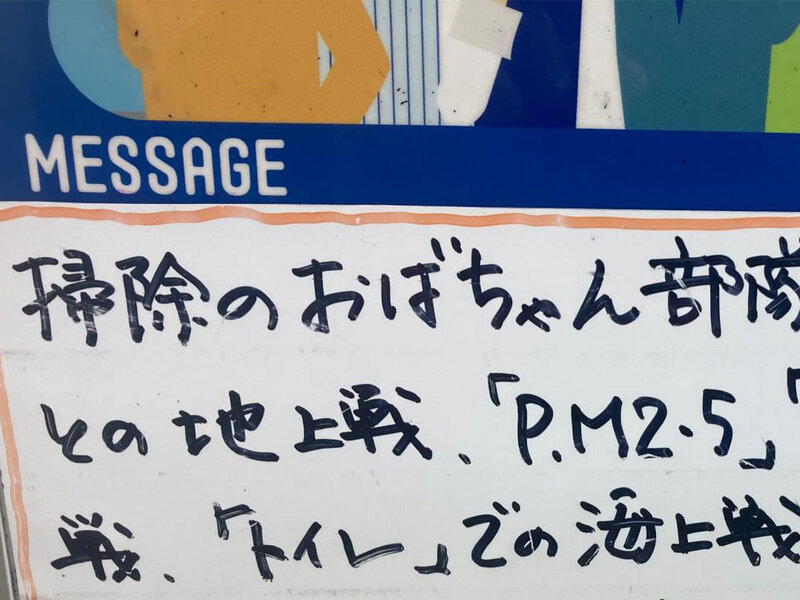 MESSAGE
掃除のおばちゃん部隊
との地上戦、「P.M2.5」「
戦、「トイレ」での海上戦